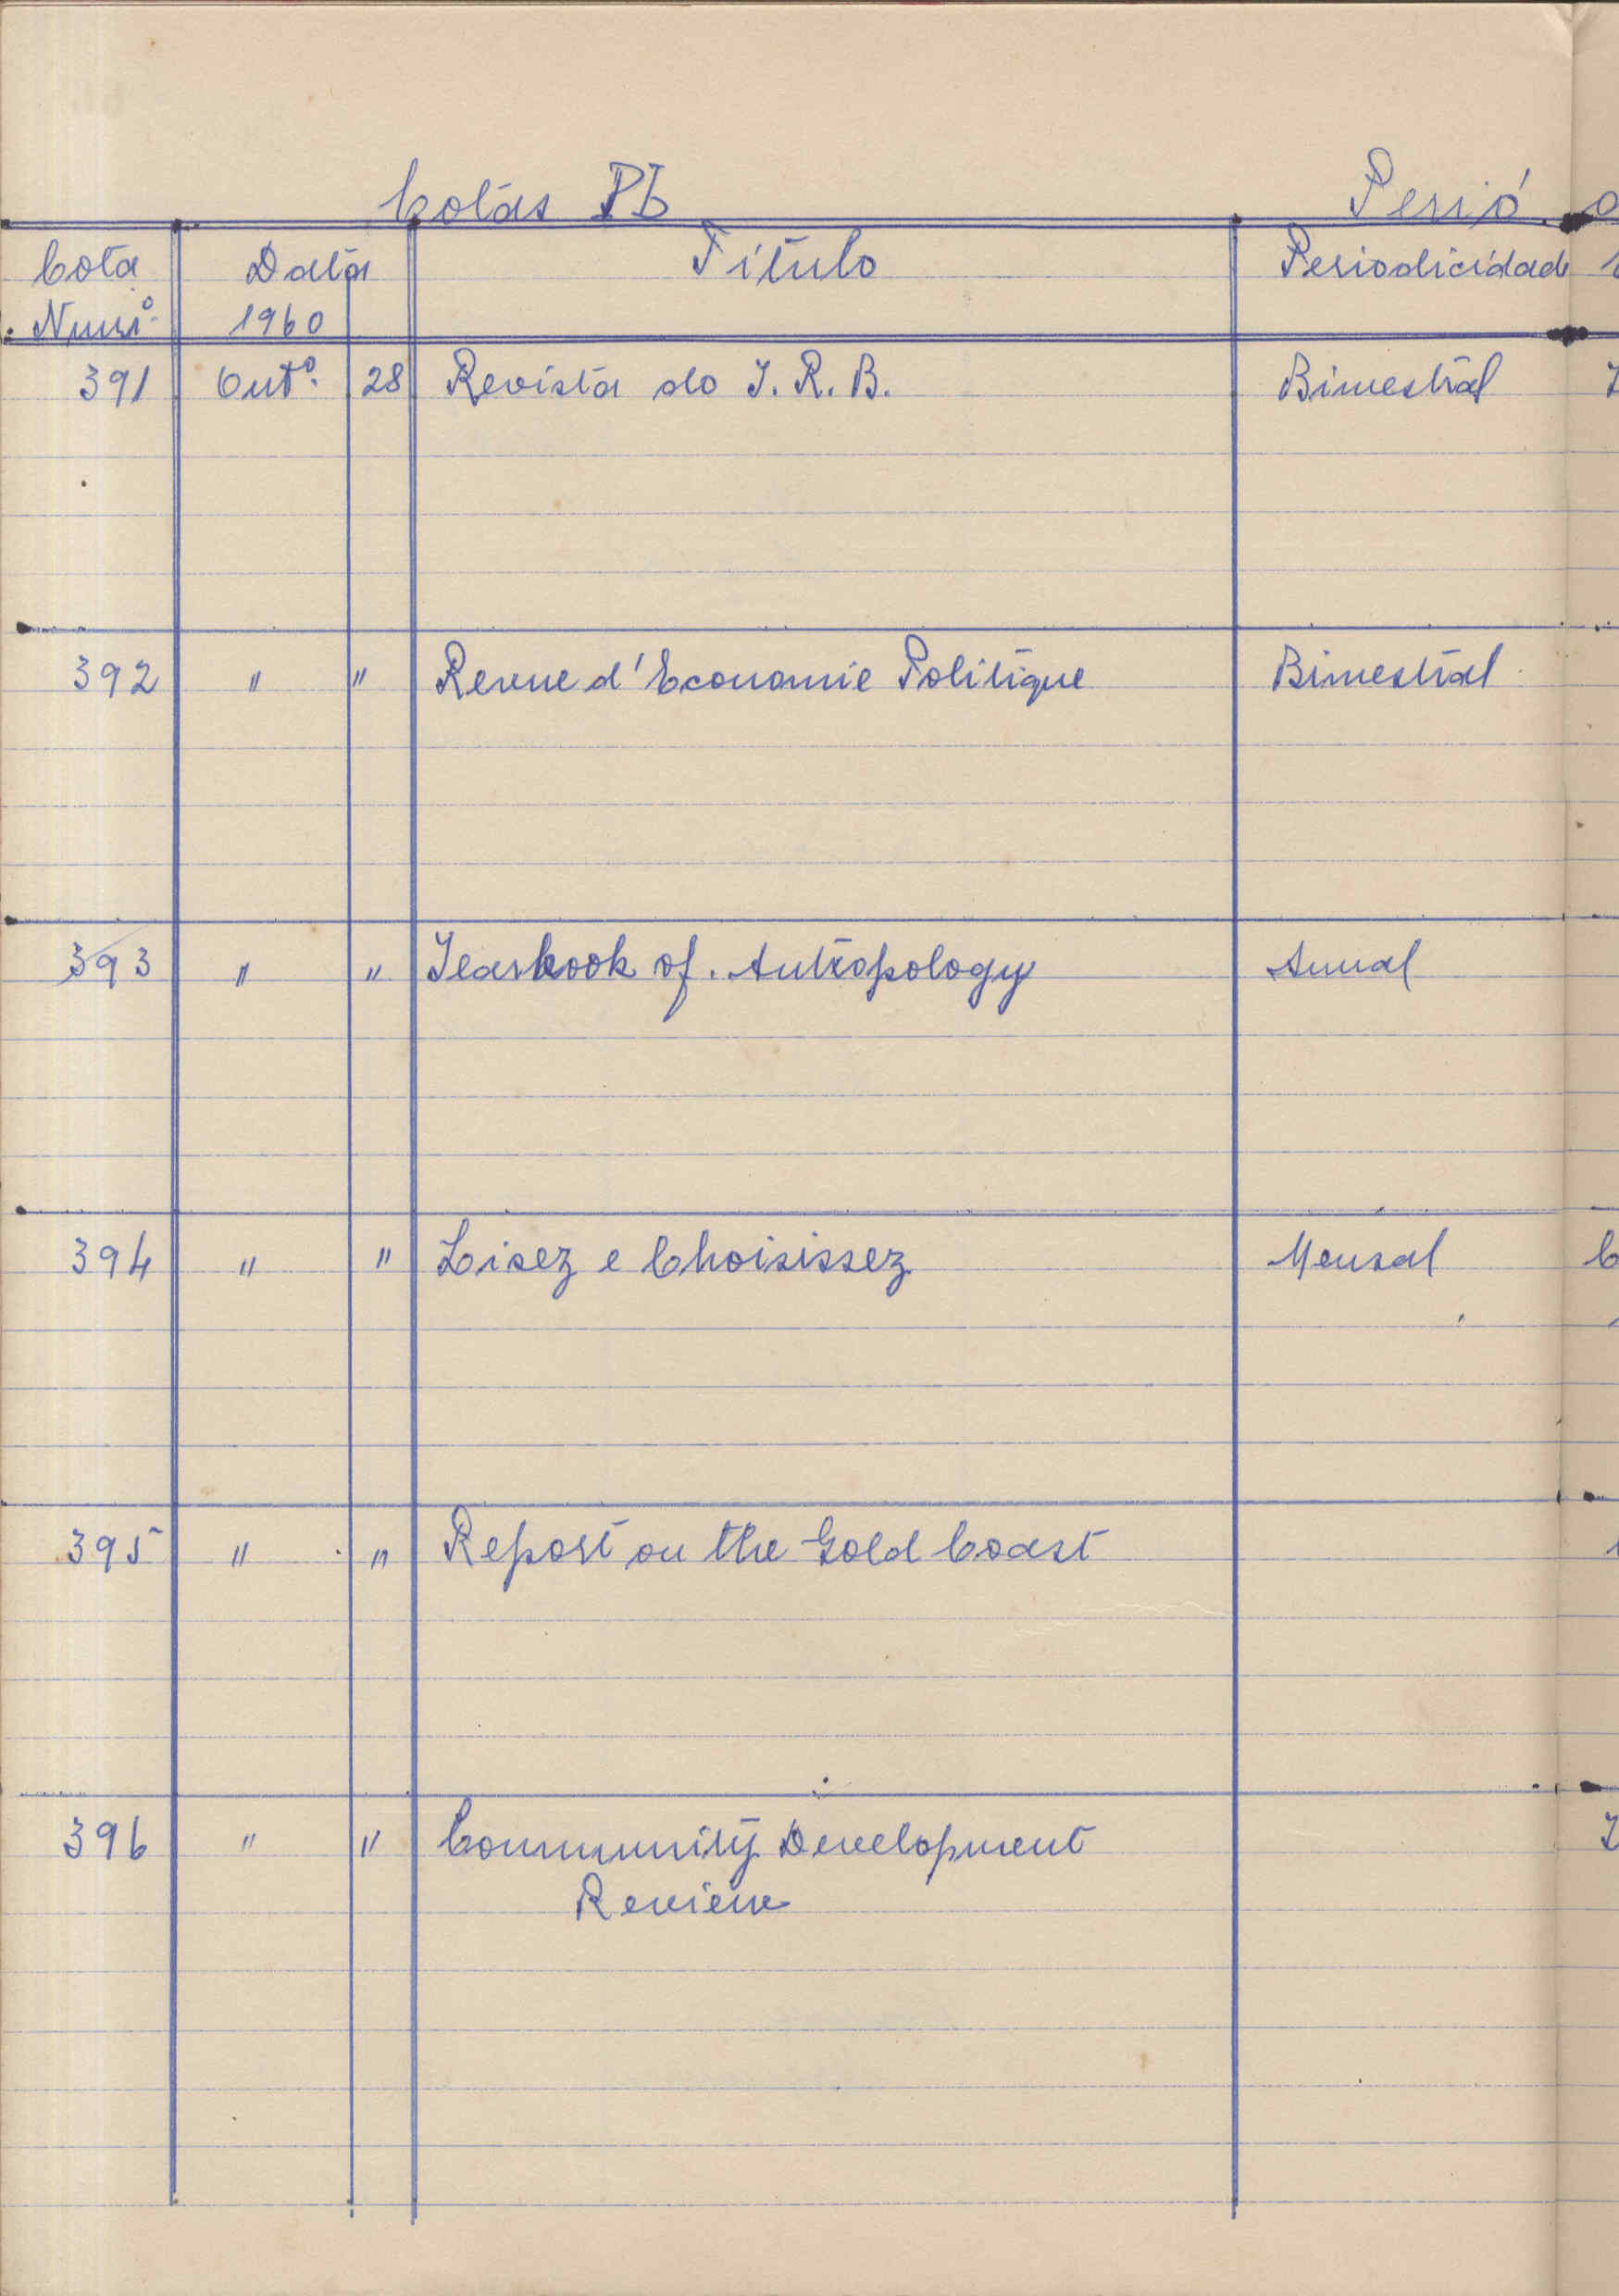 Cotas PB Perió
Cota Data Título Periodicidade
Numº 1960
391 Outº. 28 Revista do I. R. B. Bimestral
392 " " Revue d'Economie Politique Bimestral
393 " " Yearbook of Antropology Anual
394 " " Lisez e Choisissez Mensal
395 " " Report on the Gold Coast
396 " " Community Development
Review